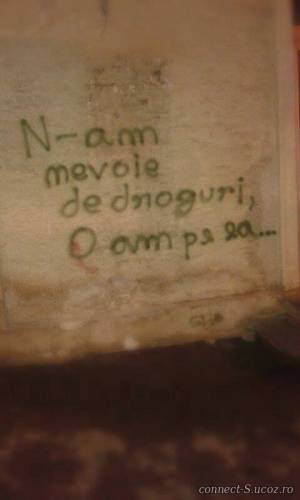 N-am
mevoie
de droguri,
O am pe ea...
connect-S.ucoz.ro